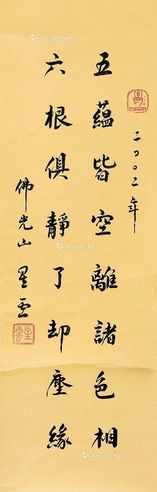 二〇〇二年
五蘊皆空離諸色相
六根俱靜了却塵緣
佛光山 星雲